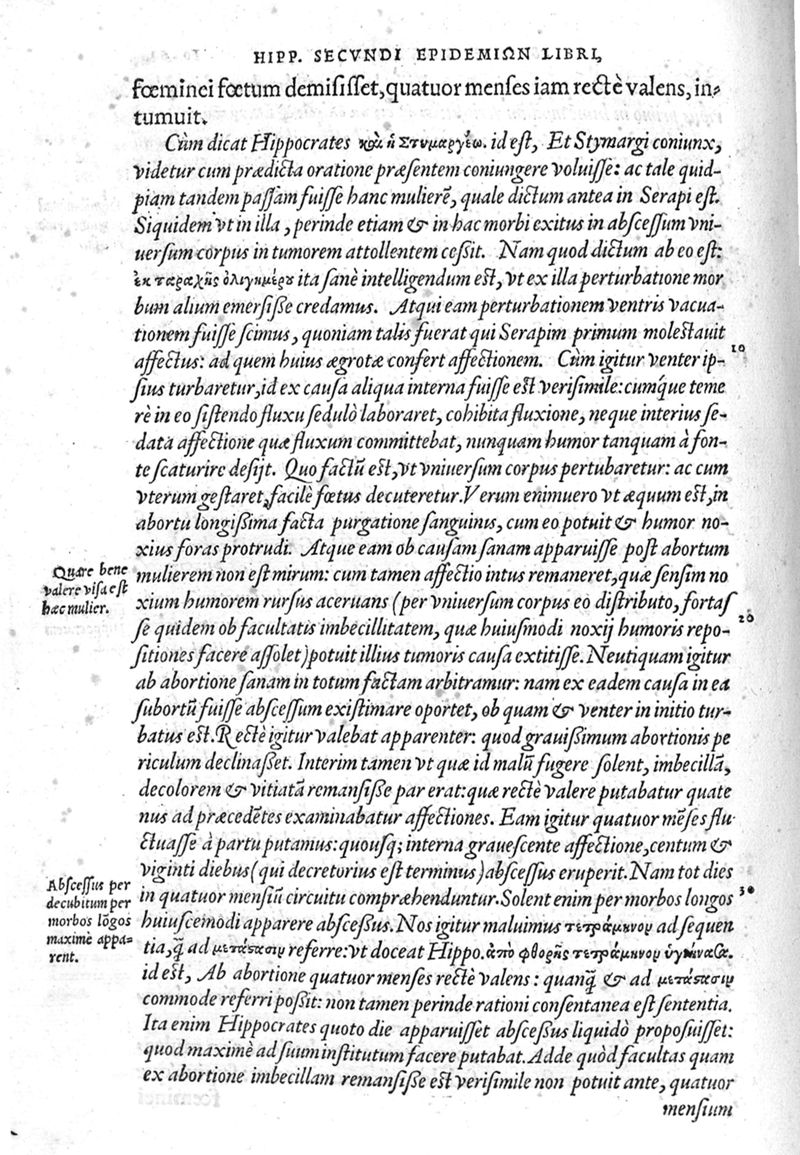 HIPP. SECVNDI EPIDEMIΩN LIBRI,
fœminei fœtum demiſiſſet, quatuor menſes iam rectè valens, in-
tumuit.
Cùm dicat Hippocrates καὶ ἡ Στυμαργέω. id eſt, Et Stymargi coniunx,
videtur cum prædicta oratione præſentem coniungere voluiſſe: ac tale quid-
piam tandem paſſam fuiſſe hanc mulierē, quale dictum antea in Serapi eſt.
Siquidem vt in illa, perinde etiam & in hac morbi exitus in abſceſſum vni-
uerſum corpus in tumorem attollentem ceßit. Nam quod dictum ab eo eſt:
ἐκ ταραχῆς ὀλιγημέρου ita ſanè intelligendum eſt, vt ex illa perturbatione mor
bum alium emerſiße credamus. Atqui eam perturbationem ventris vacua-
tionem fuiſſe ſcimus, quoniam talis fuerat qui Serapim primum moleſtauit
affectus: ad quem huius ægrotæ confert affectionem. Cùm igitur venter ip-
10
ſius turbaretur, id ex cauſa aliqua interna fuiſſe eſt veriſimile: cumq́ue teme
rè in eo ſiſtendo fluxu ſedulò laboraret, cohibita fluxione, neque interius ſe-
data affectione quæ fluxum committebat, nunquam humor tanquam à fon-
te ſcaturire deſijt. Quo factū eſt, vt vniuerſum corpus pertubaretur: ac cum
vterum geſtaret, facilè fœtus decuteretur. Verum enimuero vt æquum eſt, in
abortu longißima facta purgatione ſanguinis, cum eo potuit & humor no-
xius foras protrudi. Atque eam ob cauſam ſanam apparuiſſe poſt abortum
Quare bene
valere viſa eſt
hæc mulier.
mulierem non eſt mirum: cum tamen affectio intus remaneret, quæ ſenſim no
xium humorem rurſus aceruans (per vniuerſum corpus eo diſtributo, fortaſ
20
ſe quidem ob facultatis imbecillitatem, quæ huiuſmodi noxij humoris repo-
ſitiones facere aſſolet) potuit illius tumoris cauſa extitiſſe. Neutiquam igitur
ab abortione ſanam in totum factam arbitramur: nam ex eadem cauſa in ea
ſubortū fuiſſe abſceſſum exiſtimare oportet, ob quam & venter in initio tur-
batus eſt. Rectè igitur valebat apparenter: quod grauißimum abortionis pe
riculum declinaßet. Interim tamen vt quæ id malū fugere ſolent, imbecillā,
decolorem & vitiatā remanſiße par erat: quæ rectè valere putabatur quate
nus ad præcedētes examinabatur affectiones. Eam igitur quatuor mēſes flu-
ctuaſſe à partu putamus: quouſq; interna graueſcente affectione, centum &
viginti diebus (qui decretorius eſt terminus) abſceſſus eruperit. Nam tot dies
Abſceſſus per
decubitum per
morbos lōgos
maximè appa-
rent.
in quatuor menſiū circuitu compræhenduntur. Solent enim per morbos longos
30
huiuſcemodi apparere abſceßus. Nos igitur maluimus τετράμηνον ad ſequen
tia, q̃ ad μετάστασιν referre: vt doceat Hippo. ἀπὸ φθορῆς τετράμηνον ὑγιήνασα.
id eſt, Ab abortione quatuor menſes rectè valens: quanq̃ & ad μετάστασιν
commode referri poßit: non tamen perinde rationi conſentanea eſt ſententia.
Ita enim Hippocrates quoto die apparuiſſet abſceßus liquidò propoſuiſſet:
quod maximè ad ſuum inſtitutum facere putabat. Adde quòd facultas quam
ex abortione imbecillam remanſiße eſt veriſimile non potuit ante, quatuor
menſium